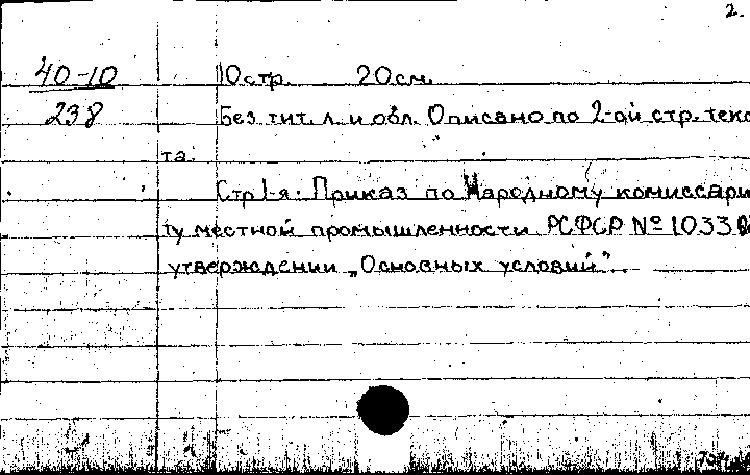 2.
40-10
238
10стр. 20см.
Без тит. л. и обл. Описано по 2-ой стр. текс
та.
Стр 1-я: Приказ по Народному комиссари
ту местной промышленности РСФСР № 1033
утверждении „Основных условий".